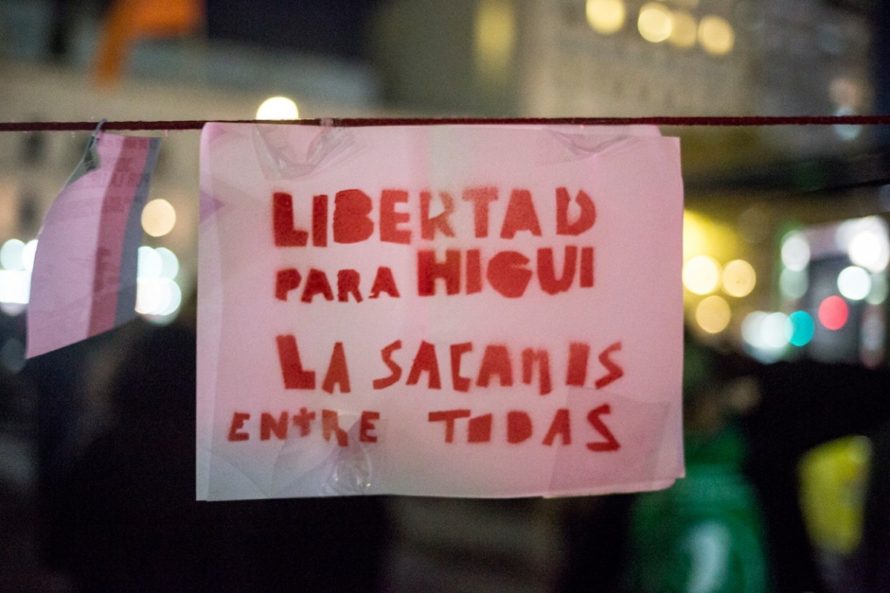 LIBERTAD
PARA HIGUI
LA SACAMOS
ENTRE TODAS